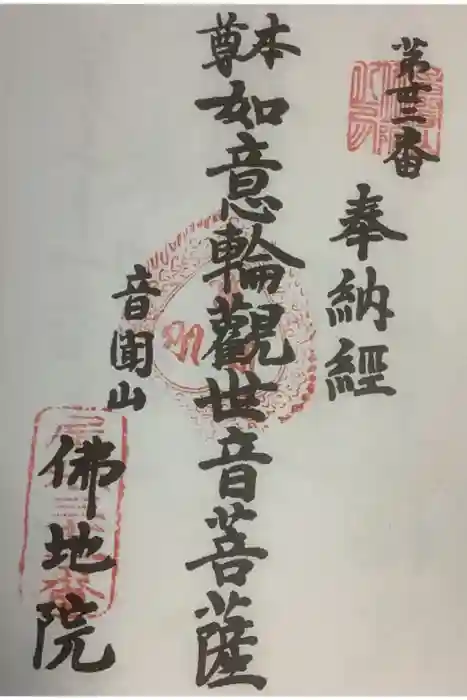 第廿三番
奉納經
本尊
如意輪觀世音菩薩
音聞山
佛地院